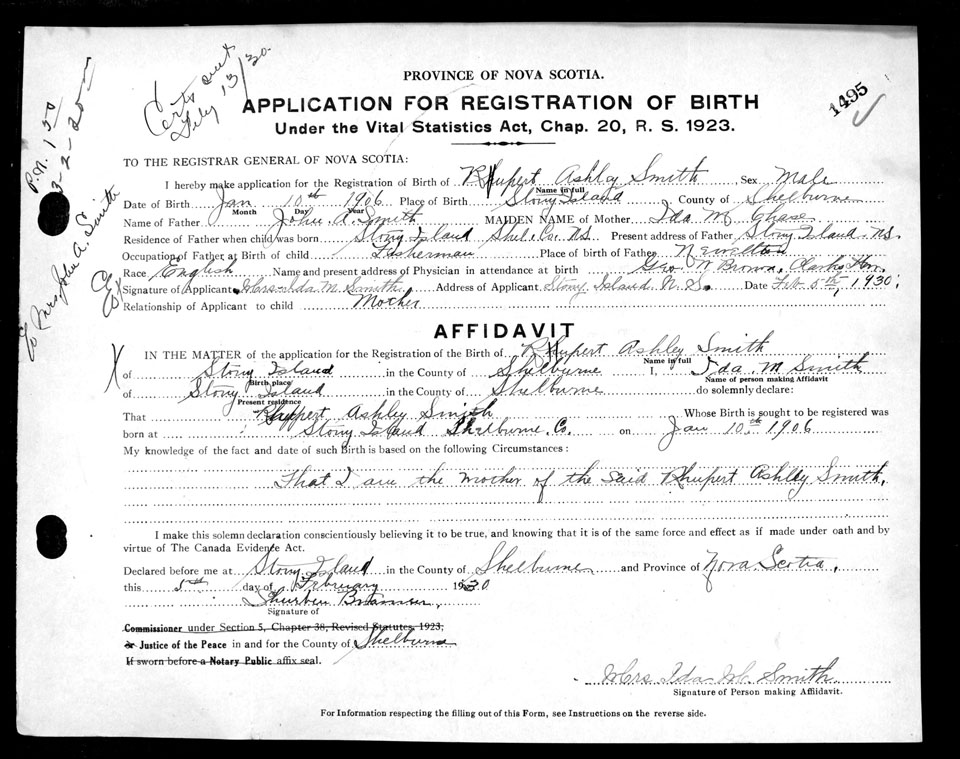 Certs sent
Feby 13/30
P.N. 150
3-2-20
To Mrs John A. Smith
1495
PROVINCE OF NOVA SCOTIA.
APPLICATION FOR REGISTRATION OF BIRTH
Under the Vital Statistics Act, Chap. 20, R. S. 1923.
TO THE REGISTRAR GENERAL OF NOVA SCOTIA:
I hereby make application for the Registration of Birth of Rhupert Ashley Smith Sex Male
Name in full
Date of Birth Jan 10th 1906 Place of Birth Stony Island County of Shelburne
Month Day Year
Name of Father John A. Smith MAIDEN NAME of Mother Ida M Chase
Residence of Father when child was born Stony Island Shel. Co. NS Present address of Father Stony Island. NS.
Occupation of Father at Birth of child Fisherman Place of birth of Father Newellton
Race English Name and present address of Physician in attendance at birth Geo N Brown, Clarks Hbr.
Signature of Applicant Mrs Ida M Smith Address of Applicant Stony Island N. S. Date Feb 5th, 1930,
Relationship of Applicant to child Mother
AFFIDAVIT
X IN THE MATTER of the application for the Registration of the Birth of Rhupert Ashley Smith
Name in full
of Stony Island in the County of Shelburne I, Ida M Smith
Birth place Name of person making Affidavit
of Stony Island in the County of Shelburne do solemnly declare:
Present residence
That Rhuppert Ashley Smith Whose Birth is sought to be registered was
born at Stony Island Shelburne Co. on Jan 10th 1906
My knowledge of the fact and date of such Birth is based on the following Circumstances:
That I am the mother of the said Rhupert Ashley Smith.
I make this solemn declaration conscientiously believing it to be true, and knowing that it is of the same force and effect as if made under oath and by
virtue of The Canada Evidence Act.
Declared before me at Stony Island in the County of Shelburne and Province of Nova Scotia,
this 5th day of February 1930
Signature of
Commissioner under Section 5, Chapter 38, Revised Statutes, 1923,
or Justice of the Peace in and for the County of Shelburne
If sworn before a Notary Public affix seal.
Mrs Ida M. Smith
Signature of Person making Affidavit.
For Information respecting the filling out of this Form, see Instructions on the reverse side.